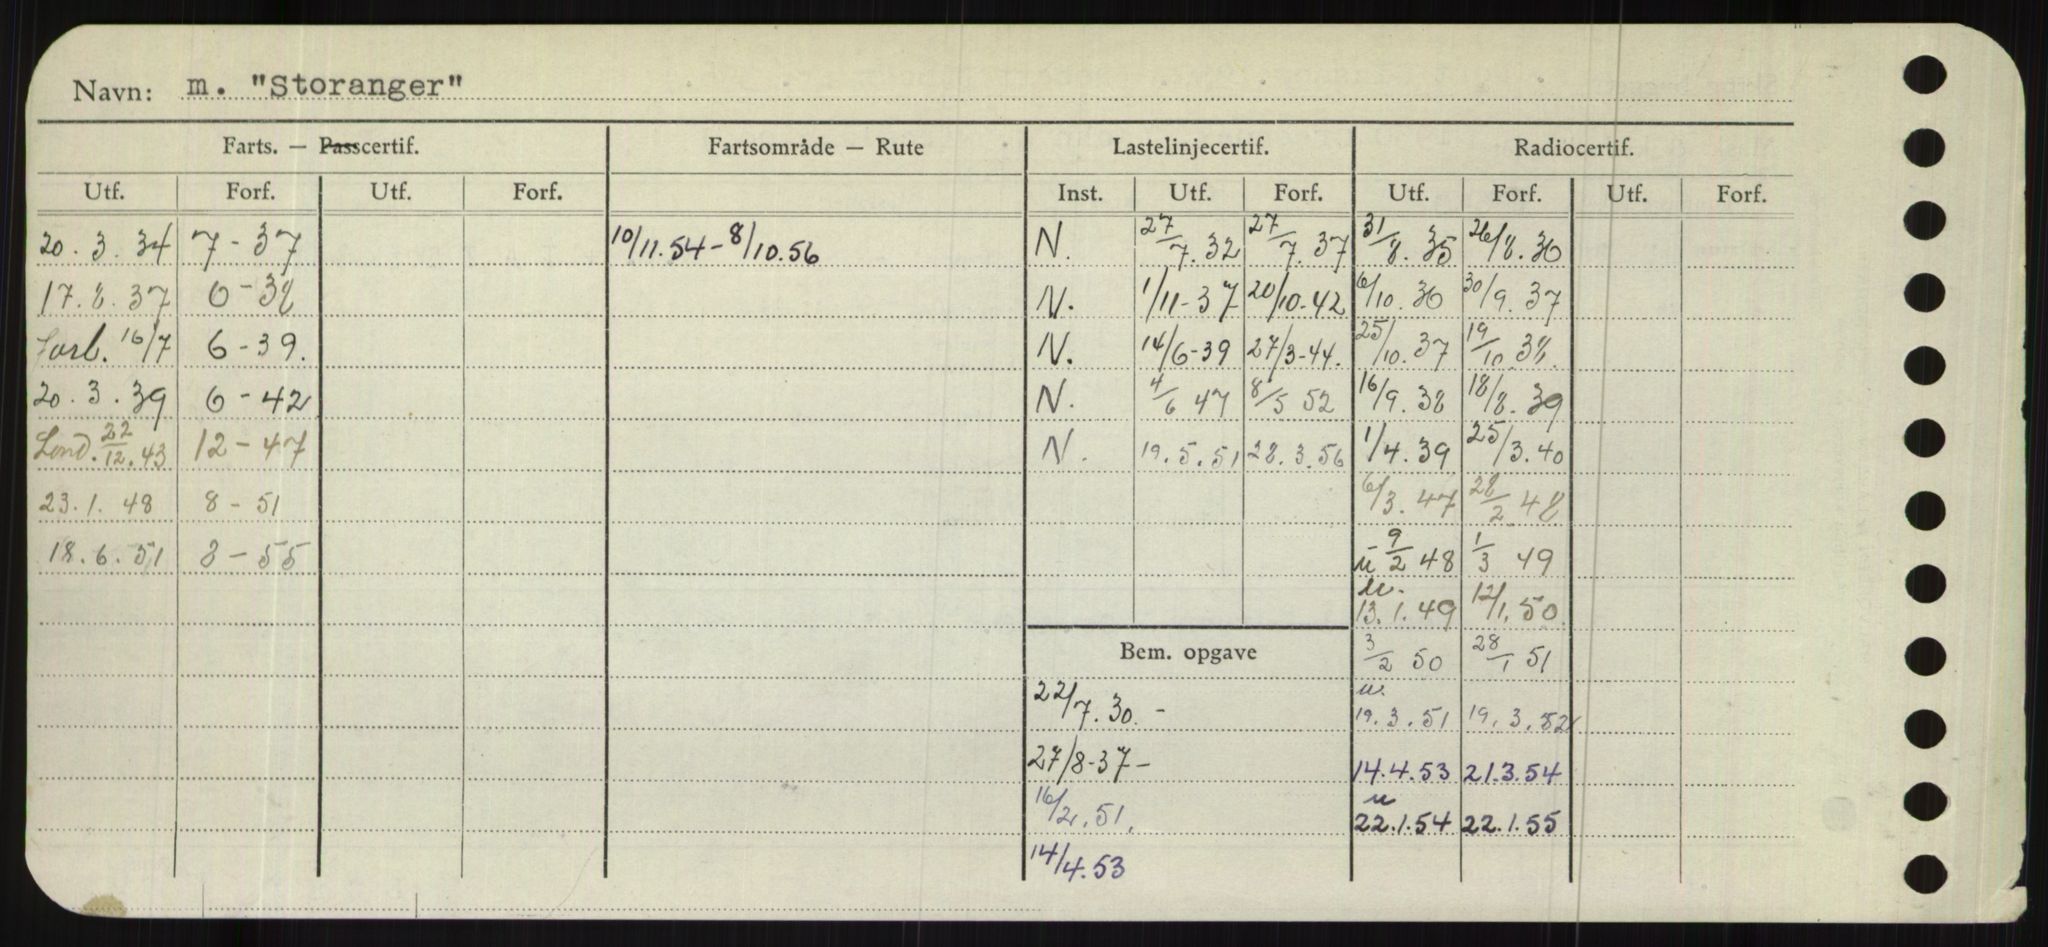 Navn: m. "Storanger"
Farts. — Passcertif. Fartsområde — Rute Lastelinjecertif. Radiocertif.
Utf. Forf. Utf. Forf. Inst. Utf. Forf. Utf. Forf. Utf. Forf.
20.3.34 7-37 10/11.54-8/10.56 N. 27/7.32 27/7.37 31/8.35 26/8.36
17.8.37 6-38 N. 1/11-37 20/10-42 6/10.36 30/9.37
Forl. 16/7 6-39. N. 14/6-39 27/3-44. 25/10.37 19/10 38.
20.3.39 6-42 N. 4/6 47 8/5 52 16/9.38 18/8.39
Lond. 22/12.43 12-47 N. 19.5.51 28.3.56 1/4.39 25/3.40
23.1.48 8-51 6/3.47 28/2 48
18.6.51 8-55 u 9/2 48 1/3 49
u.
13.1.49 12/1.50
Bem. opgave 3/2 50 28/1 51
22/7.30.- u.
19.3.51 19.3.52
27/8-37- 14.4.53 21.3.54
16/2.51. u
22.1.54 22.1.55
14/4.53